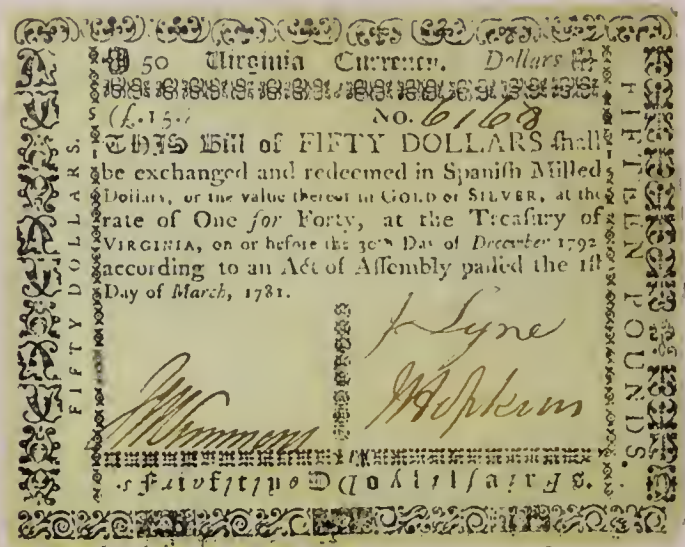 50 Virginia Currency. Dollars
(£.15.) No. 6168
THIS Bill of FIFTY DOLLARS ſhall
be exchanged and redeemed in Spaniſh Milled
Dollars, or the value thereof in GOLD or SILVER, at the
rate of One for Forty, at the Treaſury of
VIRGINIA, on or before the 30th Day of December 1792
according to an Act of Aſſembly paſſed the 1ſt
Day of March, 1781.
J Lyne
J Hopkins
FIFTY DOLLARS.
FIFTEEN POUNDS.